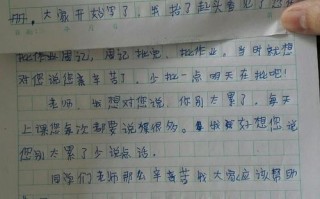 册，大家开始写了，出拾了起头看见了
批作业周记，周记批完，批作业，当时就想
对您说您真辛苦了，少批一点明天在批吧！
老师，我想对您说，你别太累了，每天
上课您每次都要说很很多。我真好想您说
您别太累了少说点话。
同学们老师那么辛苦我大家应该帮助